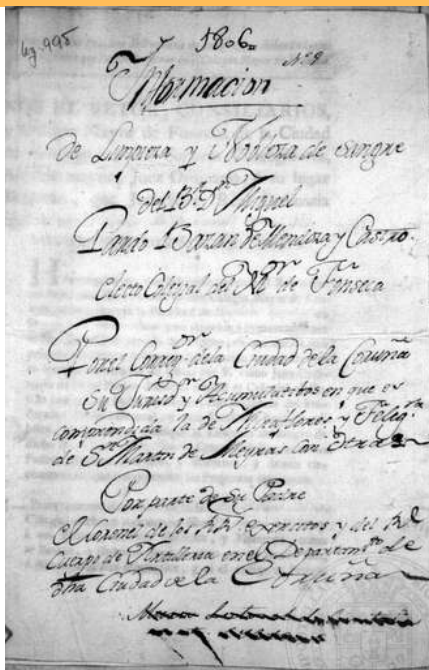 leg. 995
1806
Nº 8
Informacion
de Limpieza y Nobleza de sangre
del B.r D.n Miguel
Pardo Bazan de Mendoza y Castro
electo Colegial del M.or de Fonseca
Por el Correg.or de la Ciudad de la Coruña
Su Jurisd.n y Acumulativas en que es
comprendida la de Miraflores, y Felig.a
de S.n Martin de Meyras con otras
Por parte de Su Padre
el Coronel de los R.s Exercitos y del R.l
Cuerpo de Artilleria en el Departam.to de
dha Ciudad de la Coruña